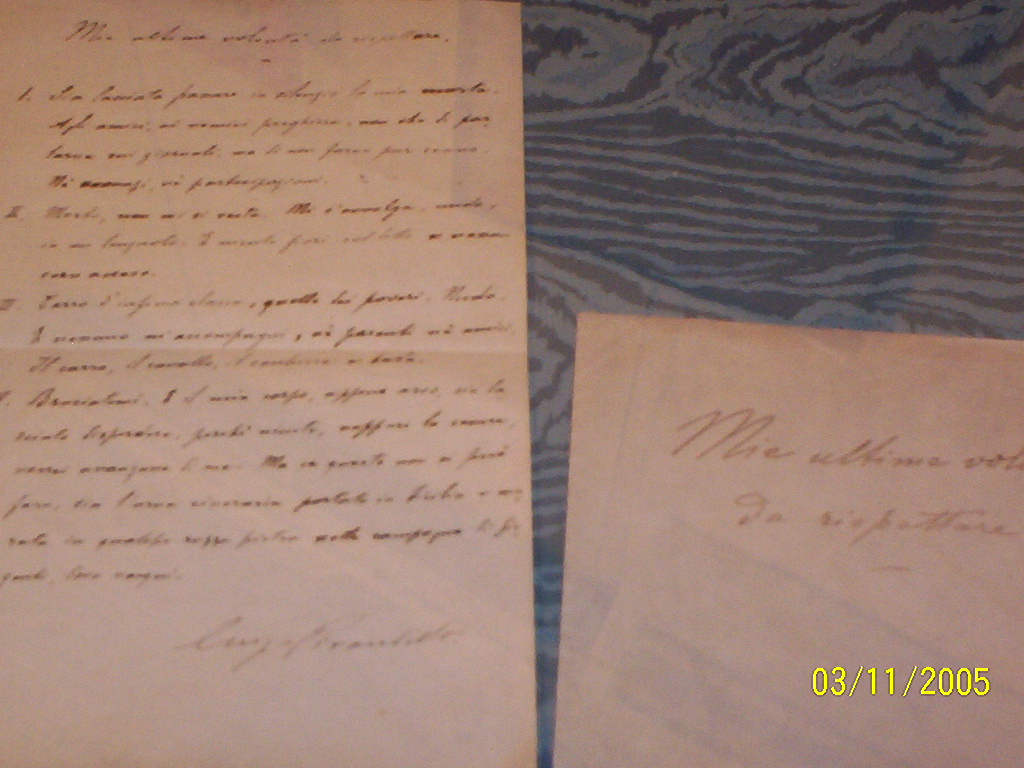 Mie ultime volontà da rispettare.
I. Sia lasciata passare in silenzio la mia morte.
Agli amici, ai nemici preghiera, non che di par-
larne sui giornali, ma di non farne pur cenno.
Nè annunzi, nè partecipazioni.
II. Morto, non mi si vesta. Mi s'avvolga, nudo,
in un lenzuolo. E niente fiori sul letto e nessun
cero acceso.
III. Carro d'infima classe, quello dei poveri. Nudo.
E nessuno mi accompagni, nè parenti nè amici.
Il carro, il cavallo, il cocchiere e basta.
Bruciatemi. E il mio corpo, appena arso, sia la-
sciato disperdere, perchè niente, neppure la cenere,
vorrei avanzasse di me. Ma se questo non si può
fare, sia l'urna cineraria portata in Sicilia e mu-
rata in qualche rozza pietra nella campagna di Gir-
genti, dove nacqui.
Luigi Pirandello
Mie ultime vol
da rispettare
03/11/2005